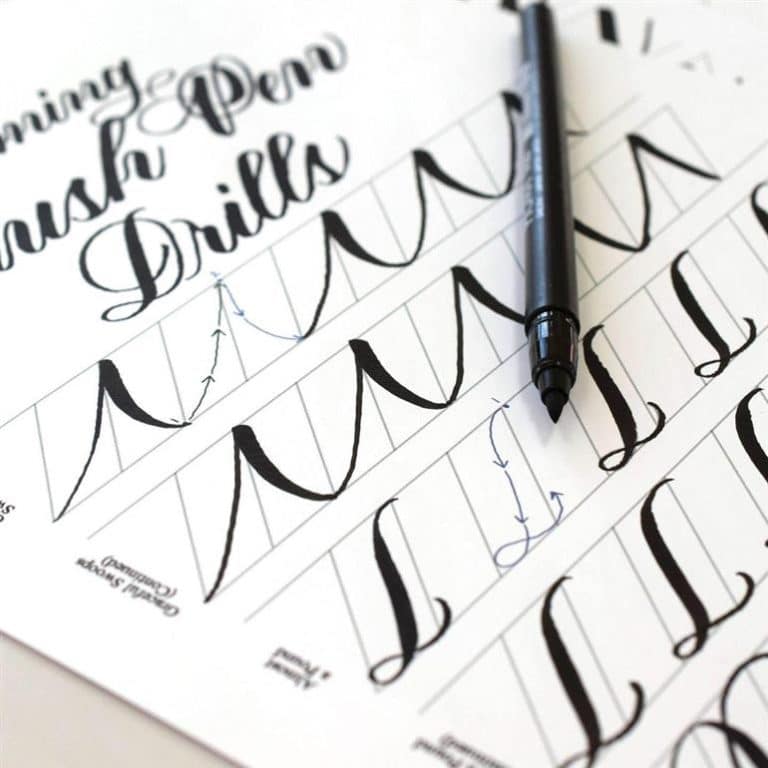 ming
ush Pen
Drills
Graceful Swoops
(Continued)
Almost
a Pound
Pound